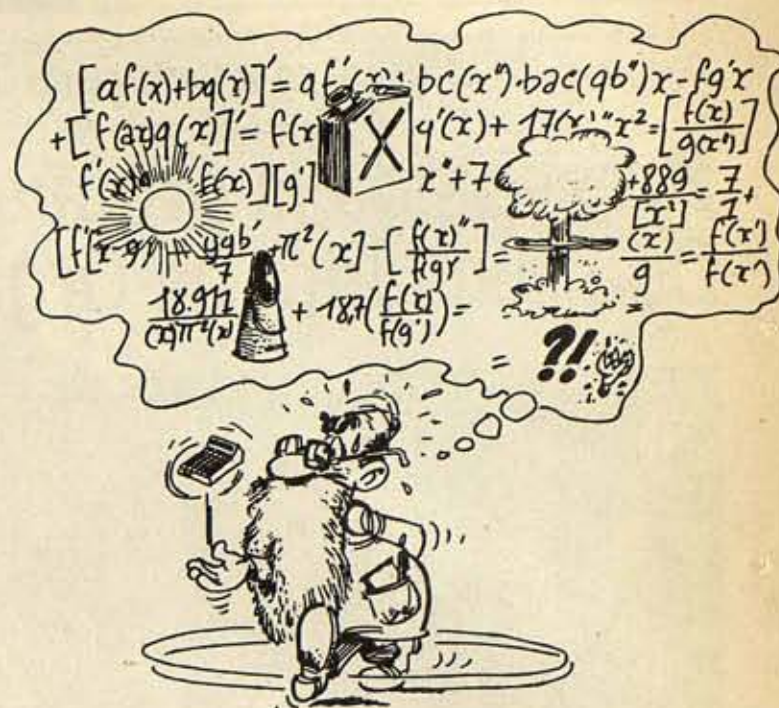 [af(x)+bg(x)]'= af'(x)+ bc(x").bac(qb")x-fg'x
+[f(ax)g(x)]'= f(x X g'(x)+ 17(x)"x²=[f(x)/g(x")]
f'(x) f(x)][g'] x"+7 +889/[x²] = 7/7+
[f'[x-g ggb'/7 +π²(x]-[f(x)"/f(g)']= (x)/g = f'(x')/f(x')
18.917/(x)π²(x) + 18,7(f(x)/f(g'))= =
= ?!